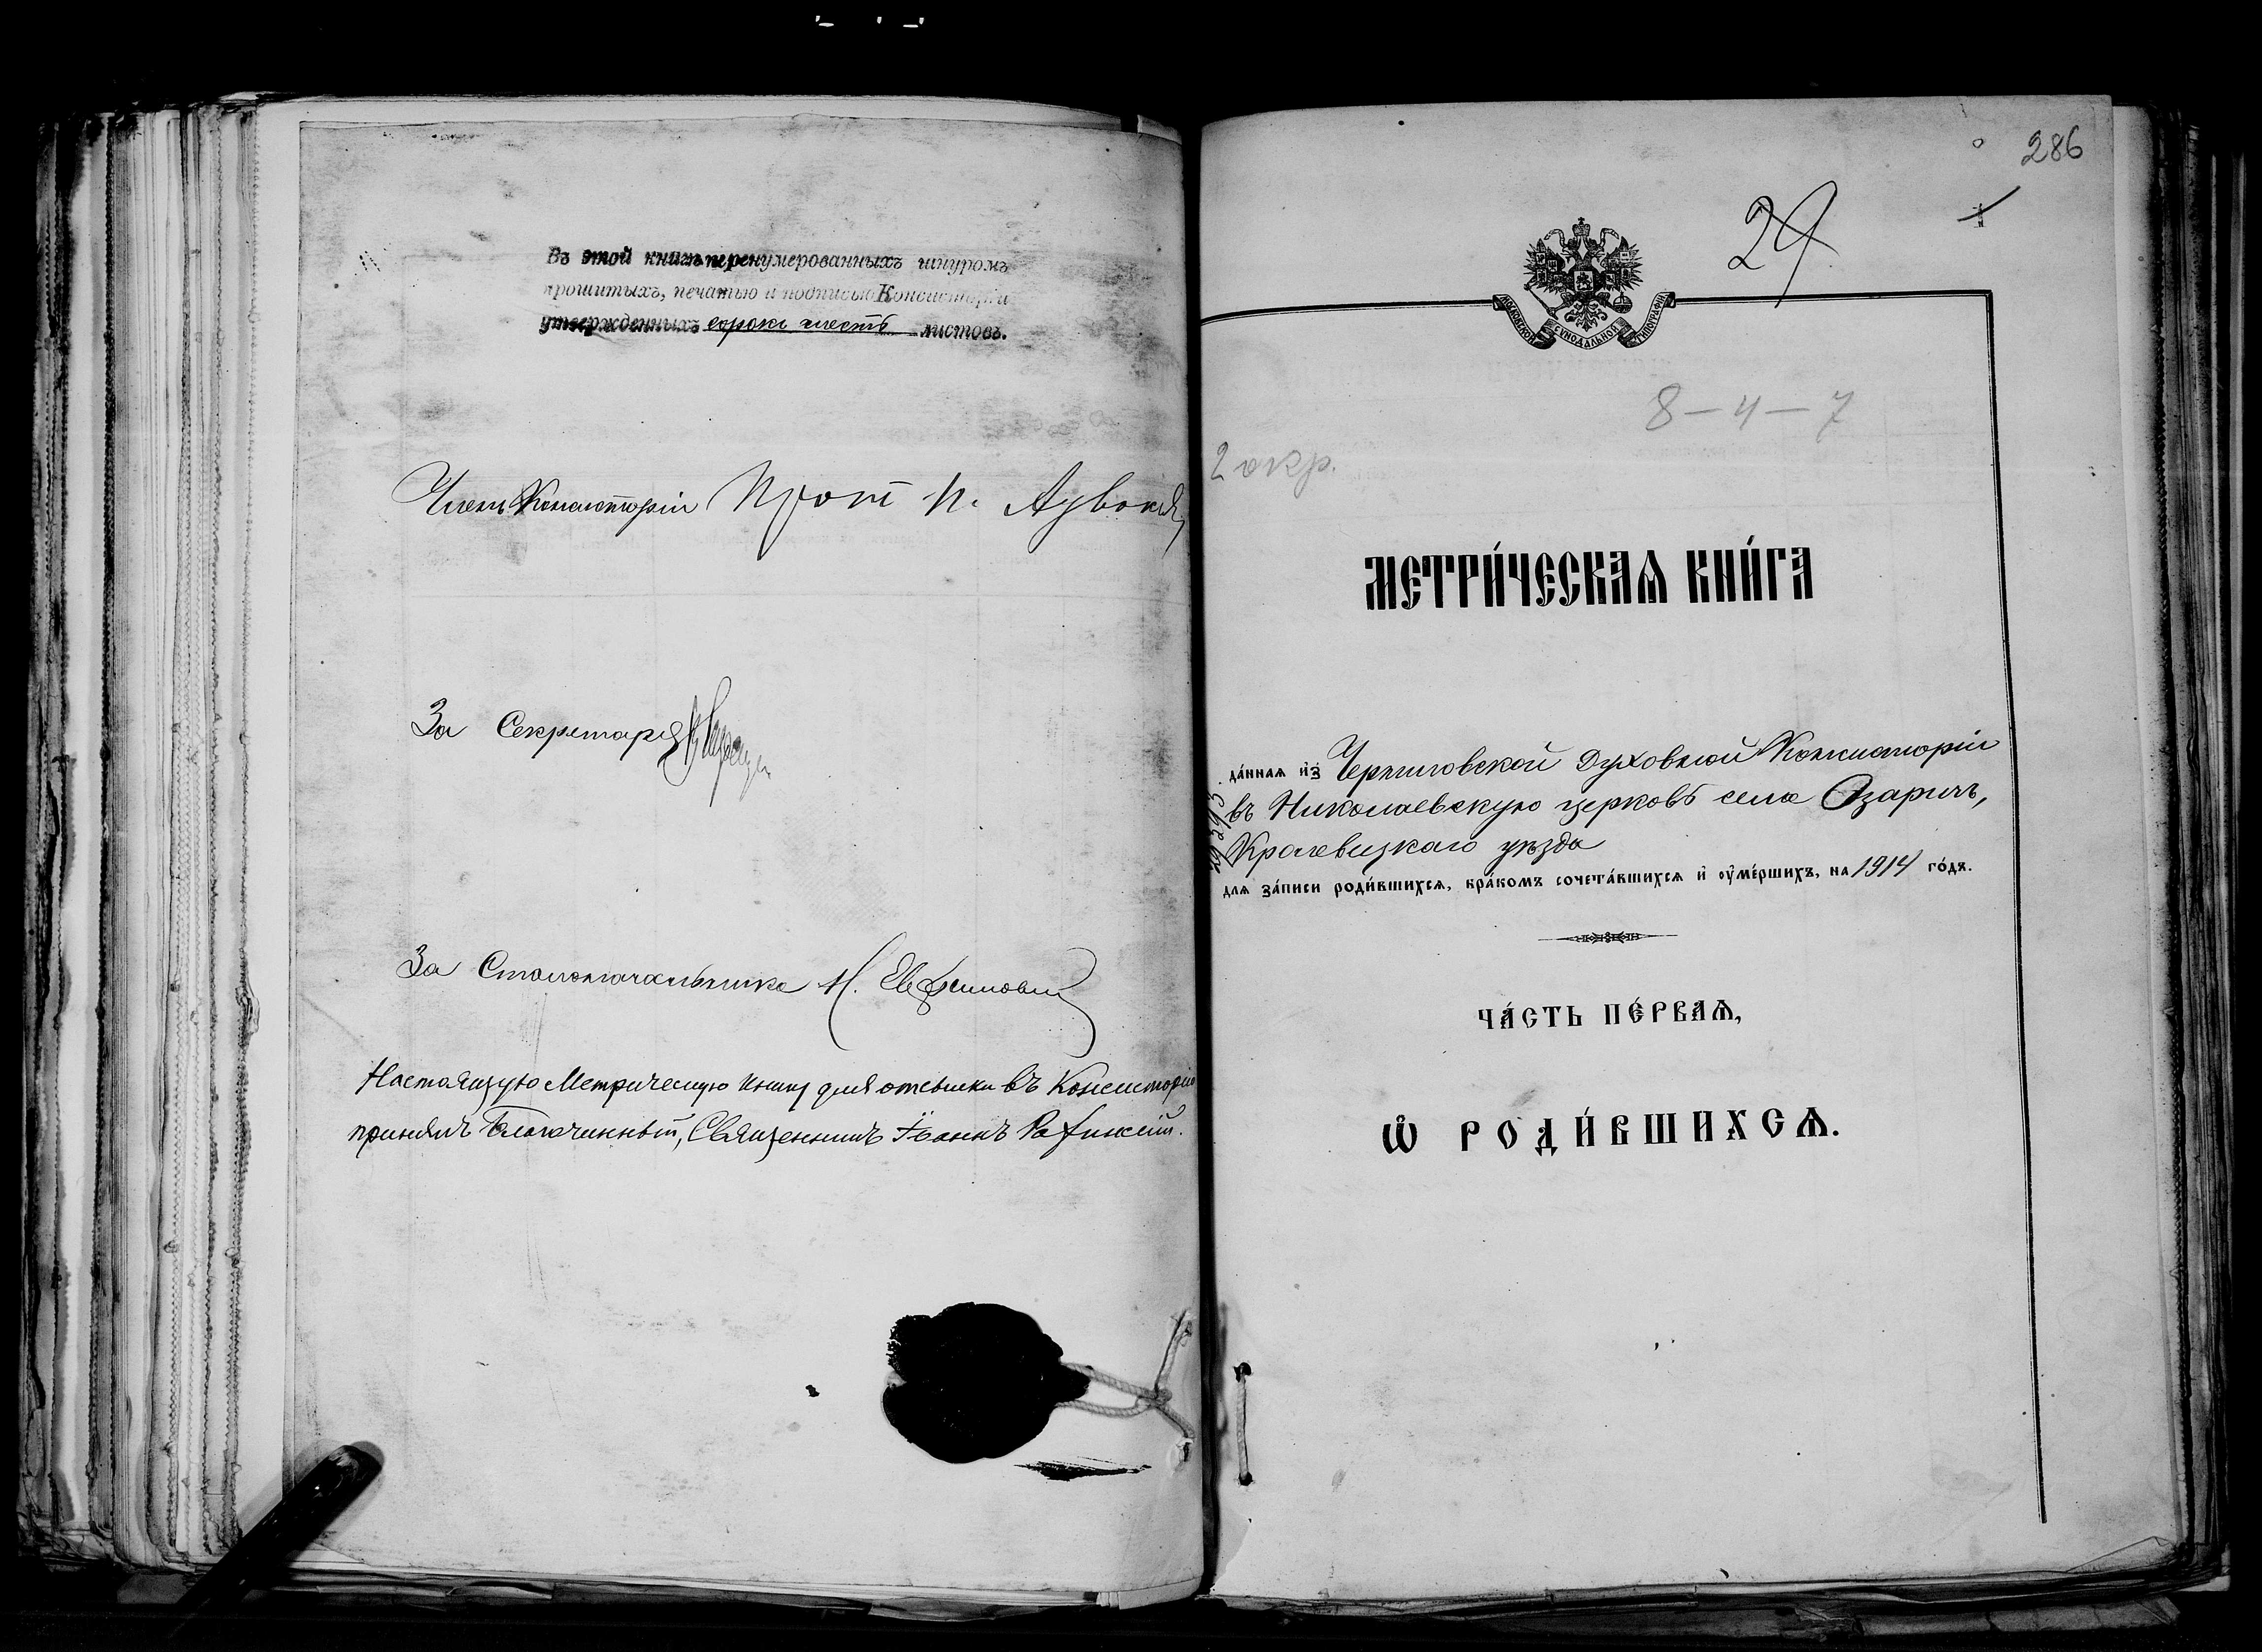 Въ этой книгѣ перенумерованныхъ шнуромъ
прошитыхъ, печатью и подписью Консисторіи
утвержденныхъ сорокъ шесть листовъ.
Членъ Консисторіи Прот. П.
За Секретаря
За Столоначальника Н. Евфимовичъ
Настоящую Метрическую книгу для отсылки въ Консисторію
принялъ Благочинный, Священникъ Іоаннъ
286
29
1
МОСКОВСКОЙ СѴНОДАЛЬНОЙ ТИПОГРАФІИ
8 – 4 – 7
2 окр.
МЕТРИ́ЧЕСКАѦ КНИ́ГА
да́ннаѧ и҆з̾ Черниговской Духовной Консисторіи
въ Николаевскую церковь села Озаричъ,
Кролевецкаго уѣзда
длѧ за́писи роди́вшихсѧ, бра́комъ сочета́вшихсѧ и҆ ᲂу҆ме́ршихъ, на 1914 го́дъ.
ЧА́СТЬ ПЕ́РВАѦ,
Ѽ РОДИ́ВШИХСѦ.